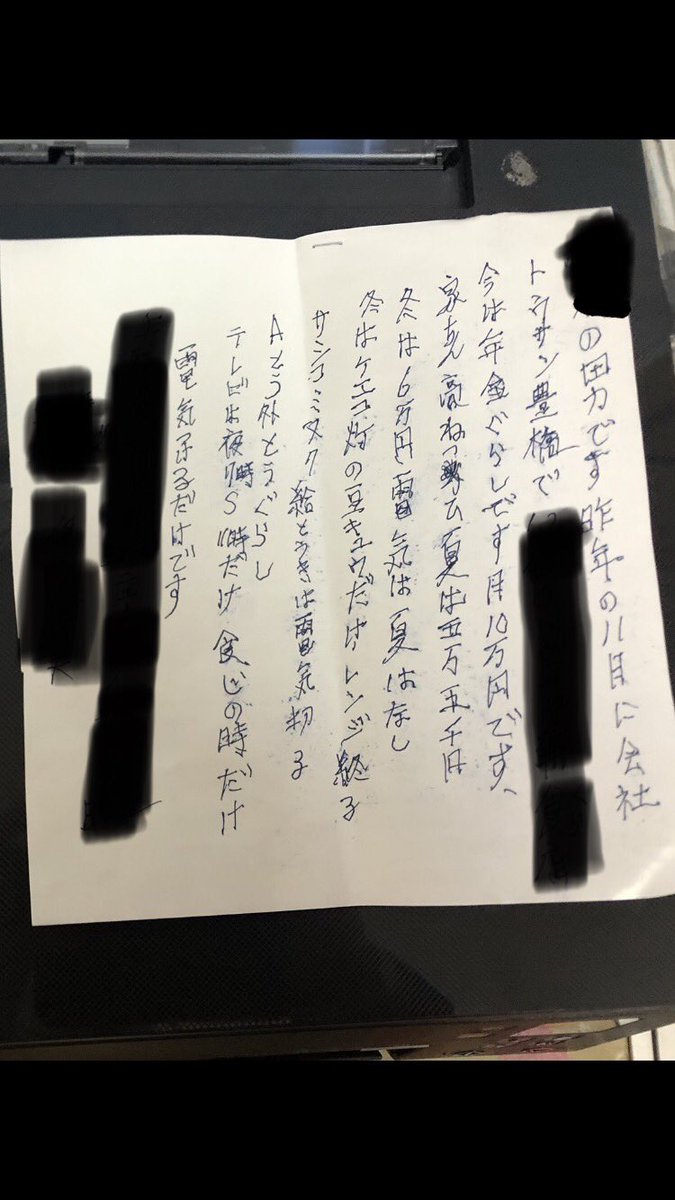 の田力です 昨年の11月に会社
トウサン豊橋で
今は年金ぐらしです月10万円です、
家ちん高ねつ費 夏は五万五千円
冬は6万円電気は夏はなし
冬はケエコ灯の豆キュウだけレンジ終る
サンコ 給とうきは電気切る
Aとう外とうぐらし
テレビは夜7時S11時だけ 食じの時だけ
電気 るだけです